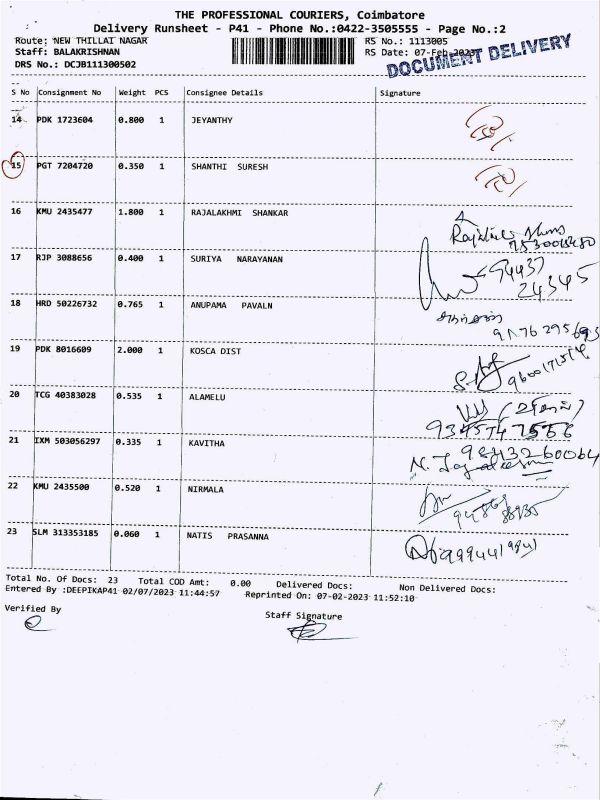 THE PROFESSIONAL COURIERS, Coimbatore
Delivery Runsheet - P41 - Phone No.:0422-3505555 - Page No.:2
Route: NEW THILLAI NAGAR RS No.: 1113005
Staff: BALAKRISHNAN RS Date: 07-Feb-2023
DRS No.: DCJB111300502
DOCUMENT DELIVERY
S No Consignment No Weight PCS Consignee Details Signature
14 PDK 1723604 0.800 1 JEYANTHY
15 PGT 7204720 0.350 1 SHANTHI SURESH
16 KMU 2435477 1.800 1 RAJALAKHMI SHANKAR
17 RJP 3088656 0.400 1 SURIYA NARAYANAN 94437
24345
18 HRD 50226732 0.765 1 ANUPAMA PAVALN
9176295693
19 PDK 8016609 2.000 1 KOSCA DIST
20 TCG 40383028 0.535 1 ALAMELU
21 IXM 503056297 0.335 1 KAVITHA
22 KMU 2435500 0.520 1 NIRMALA
23 SLM 313353185 0.060 1 NATIS PRASANNA
Total No. Of Docs: 23 Total COD Amt: 0.00 Delivered Docs: Non Delivered Docs:
Entered By :DEEPIKAP41 02/07/2023 11:44:57 Reprinted On: 07-02-2023 11:52:10
Verified By Staff Signature